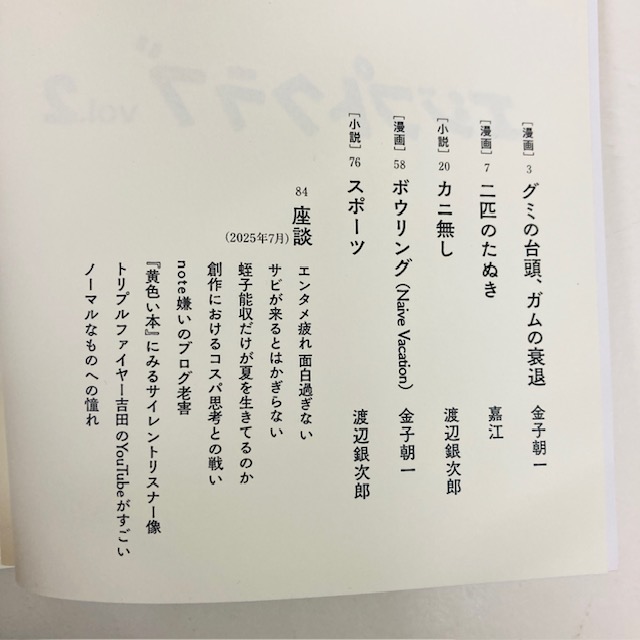 [漫画] 3 グミの台頭、ガムの衰退 金子朝一
[漫画] 7 二匹のたぬき 嘉江
[小説] 20 カニ無し 渡辺銀次郎
[漫画] 58 ボウリング (Naive Vacation) 金子朝一
[小説] 76 スポーツ 渡辺銀次郎
84 座談 (2025年7月)
エンタメ疲れ 面白過ぎない
サビが来るとはかぎらない
蛭子能収だけが夏を生きてるのか
創作におけるコスパ思考との戦い
note嫌いのブログ老害
『黄色い本』にみるサイレントリスナー像
トリプルファイヤー吉田のYouTubeがすごい
ノーマルなものへの憧れ
エジプトクラブ vol.2